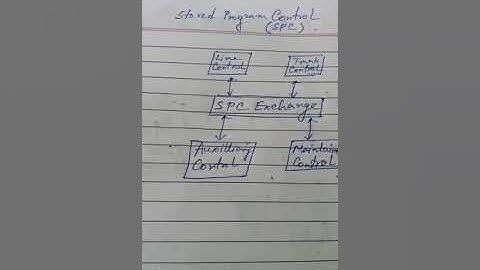 Stored Program Control
(SPC)
Line Control
Trunk Control
SPC Exchange
Auxilliary Contol
Maintain Control